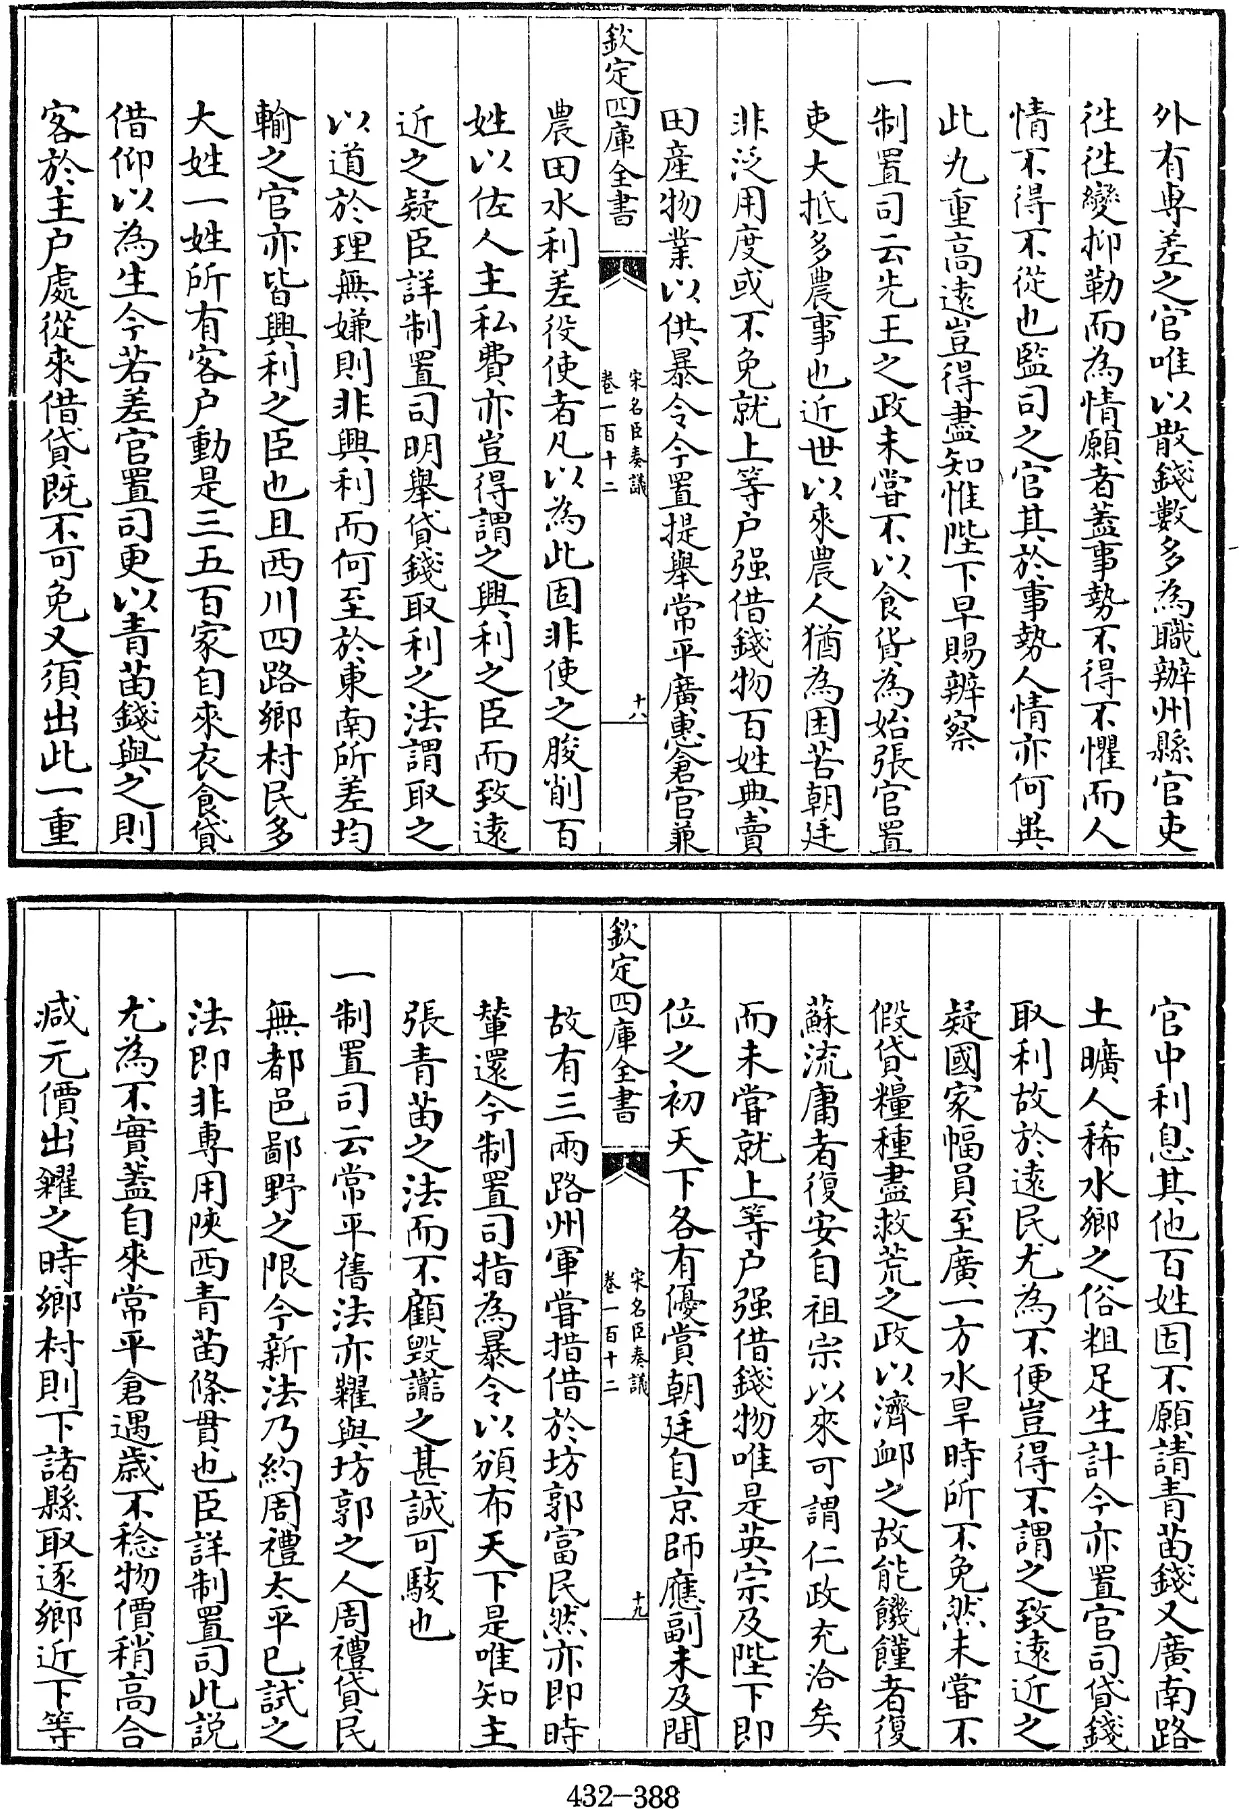 外有專差之官唯以散錢數多為職辦州縣官吏
徃徃變抑勒而為情願者蓋事勢不得不懼而人
情不得不從也監司之官其於事勢人情亦何異
此九重高遠豈得盡知惟陛下早賜辨察
一制置司云先王之政未嘗不以食貨為始張官置
吏大抵多農事也近世以來農人猶為困苦朝廷
非泛用度或不免就上等户强借錢物百姓典賣
田産物業以供暴令今置提舉常平廣惠倉官兼
欽定四庫全書
宋名臣奏議
卷一百十二
十八
農田水利差役使者凡以為此固非使之朘削百
姓以佐人主私費亦豈得謂之興利之臣而致遠
近之疑臣詳制置司明舉貸錢取利之法謂取之
以道於理無嫌則非興利而何至於東南所差均
輸之官亦皆興利之臣也且西川四路鄉村民多
大姓一姓所有客户動是三五百家自來衣食貸
借仰以為生今若差官置司更以青苗錢與之則
客於主户處從來借貸既不可免又須出此一重
官中利息其他百姓固不願請青苗錢又廣南路
土曠人稀水鄉之俗粗足生計今亦置官司貸錢
取利故於遠民尤為不便豈得不謂之致遠近之
疑國家幅員至廣一方水旱時所不免然未嘗不
假貸糧種盡救荒之政以濟卹之故能饑饉者復
蘇流庸者復安自祖宗以來可謂仁政充洽矣
而未嘗就上等户强借錢物唯是英宗及陛下即
位之初天下各有優賞朝廷自京師應副未及間
欽定四庫全書
宋名臣奏議
卷一百十二
十九
故有三兩路州軍嘗措借於坊郭富民然亦即時
輦還今制置司指為暴令以頒布天下是唯知主
張青苗之法而不顧毀讟之甚誠可駭也
一制置司云常平舊法亦糶與坊郭之人周禮貸民
無都邑鄙野之限今新法乃約周禮太平已試之
法即非專用陝西青苗條貫也臣詳制置司此説
尤為不實蓋自來常平倉遇歲不稔物價稍高合
減元價出糶之時鄉村則下諸縣取逐鄉近下等
432-388